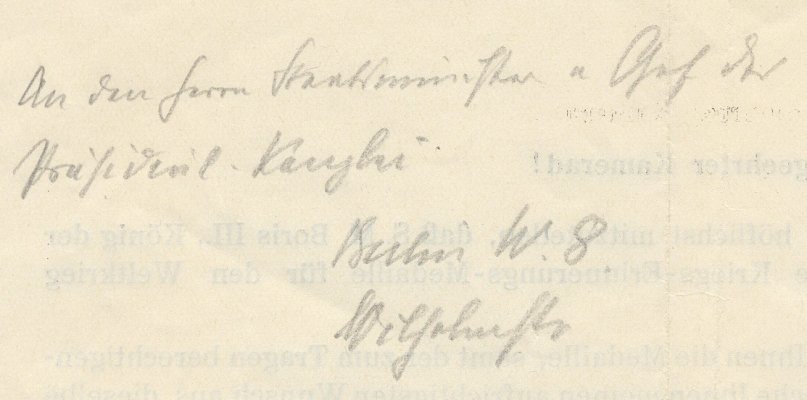 An den Herrn Staatsminister u Chef der
geehrter Kamerad!
Präsidial-Kanzlei
höflichst mitzuteilen, daß S. M. Boris III., König der
Berlin W. 8.
Kriegs-Erinnerungs-Medaille für den Weltkrieg
Wilhelmstr
Ihnen die Medaille, samt der zum Tragen berechtigen-
Ihnen aufrichtigsten Wunsch aus, dieselbe